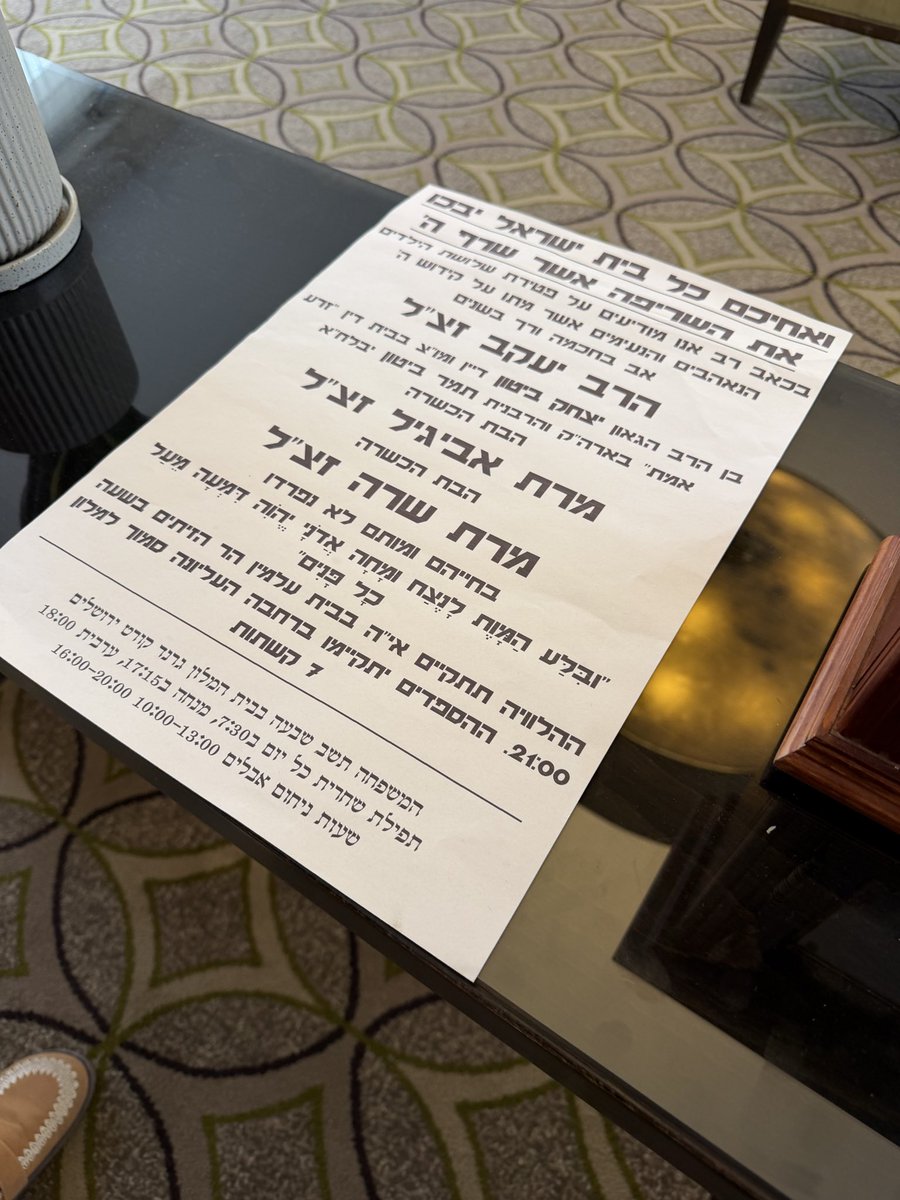 ואחיכם כל בית ישראל יבכו
את השריפה אשר שרף ה'
בכאב רב אנו מודיעים על פטירת שלושת הילדים
הנאהבים והנעימים אשר מתו על קידוש ה'
אב בחכמה ורך בשנים
הרב יעקב זצ"ל
בן הרב הגאון יצחק ביטון דיין ומו"צ בבית דין "זרע
אמת" בארה"ק והרבנית תמר ביטון יבלח"א
הבת הכשרה
מרת אביגיל זצ"ל
הבת הכשרה
מרת שרה זצ"ל
בחייהם ומותם לא נפרדו
"וּבִּלַּע הַמָּוֶת לָנֶצַח וּמָחָה אֲדֹנָי יֱהֹוִה דִּמְעָה מֵעַל
כׇּל פָּנִים"
ההלוויה תתקיים אי"ה בבית עלמין הר הזיתים בשעה
21:00. ההספדים יתקיימו ברחבה העליונה סמוך למלון
7 קשתות
המשפחה תשב שבעה בבית המלון גרנד קורט ירושלים
תפילת שחרית כל יום ב7:30, מנחה ב17:15, ערבית 18:00
שעות ניחום אבלים 10:00-13:00 16:00-20:00